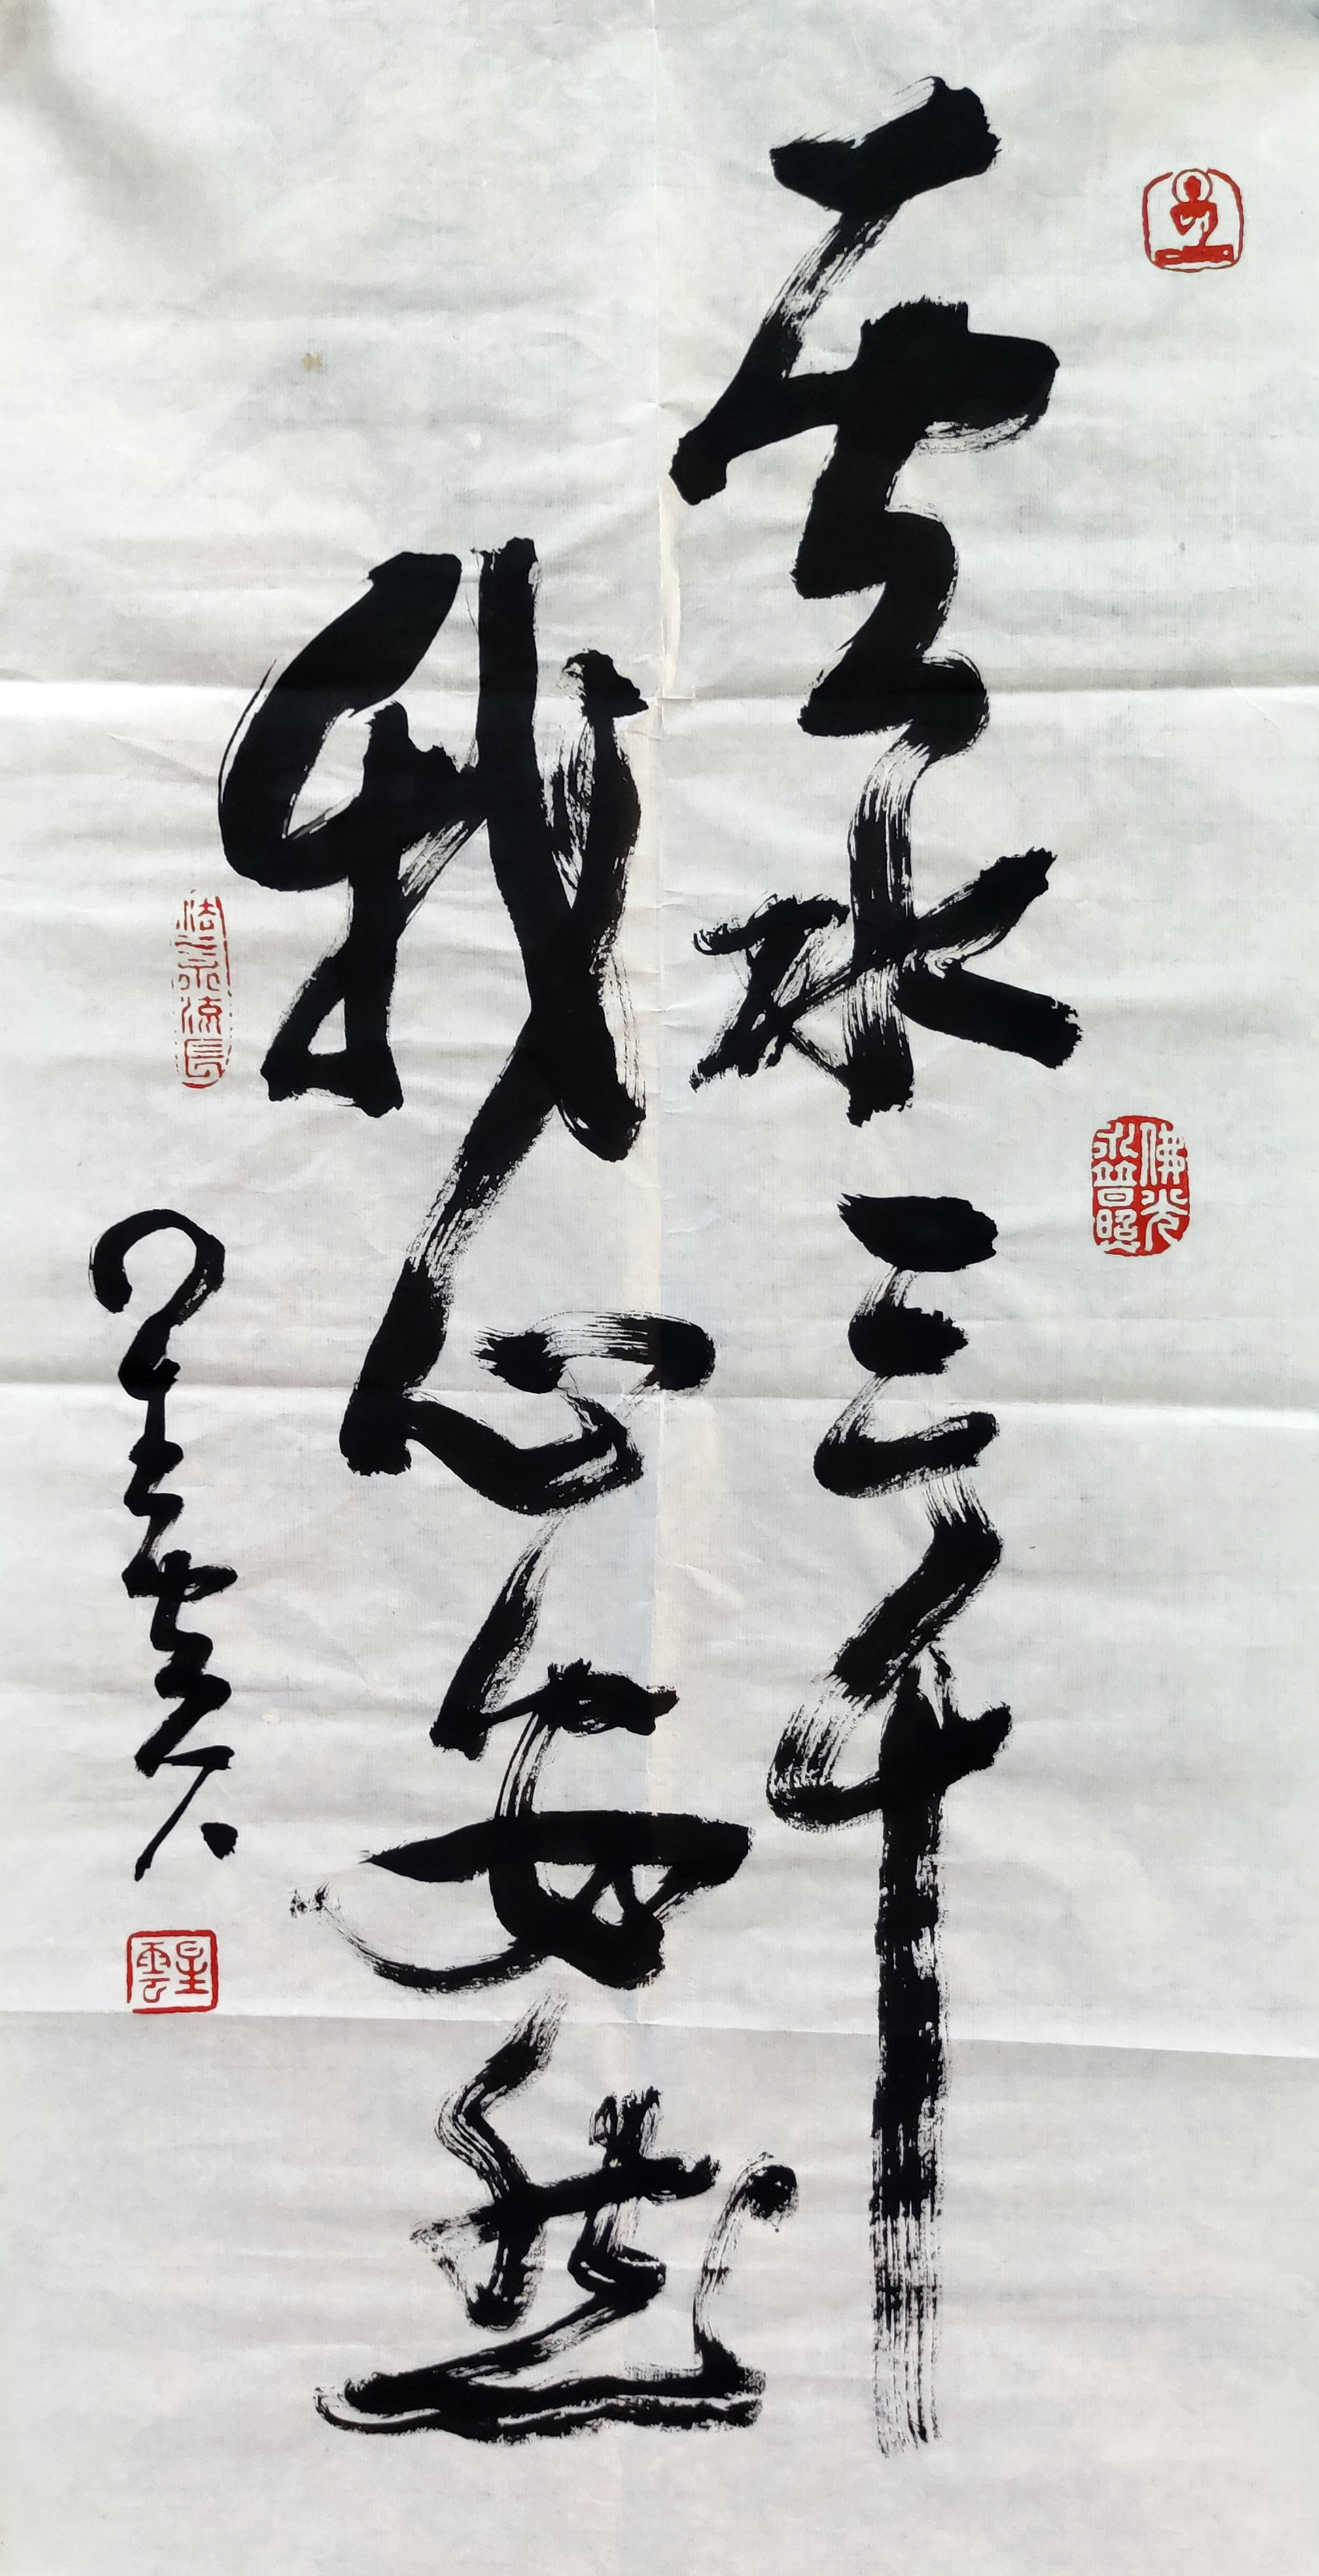 雲水三千
我心安然
星雲
佛光
永普照
法水流長
星雲